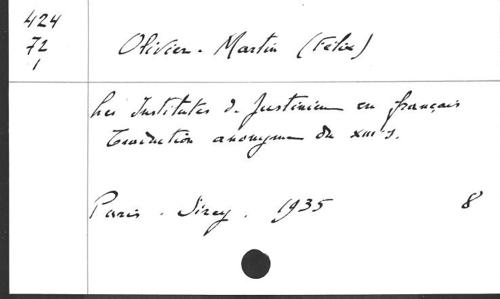 424
72
1
Olivier-Martin (Félix)
Les Institutes de Justinien en français
Traduction anonyme du XIIIe s.
Paris. Sirey. 1935 8